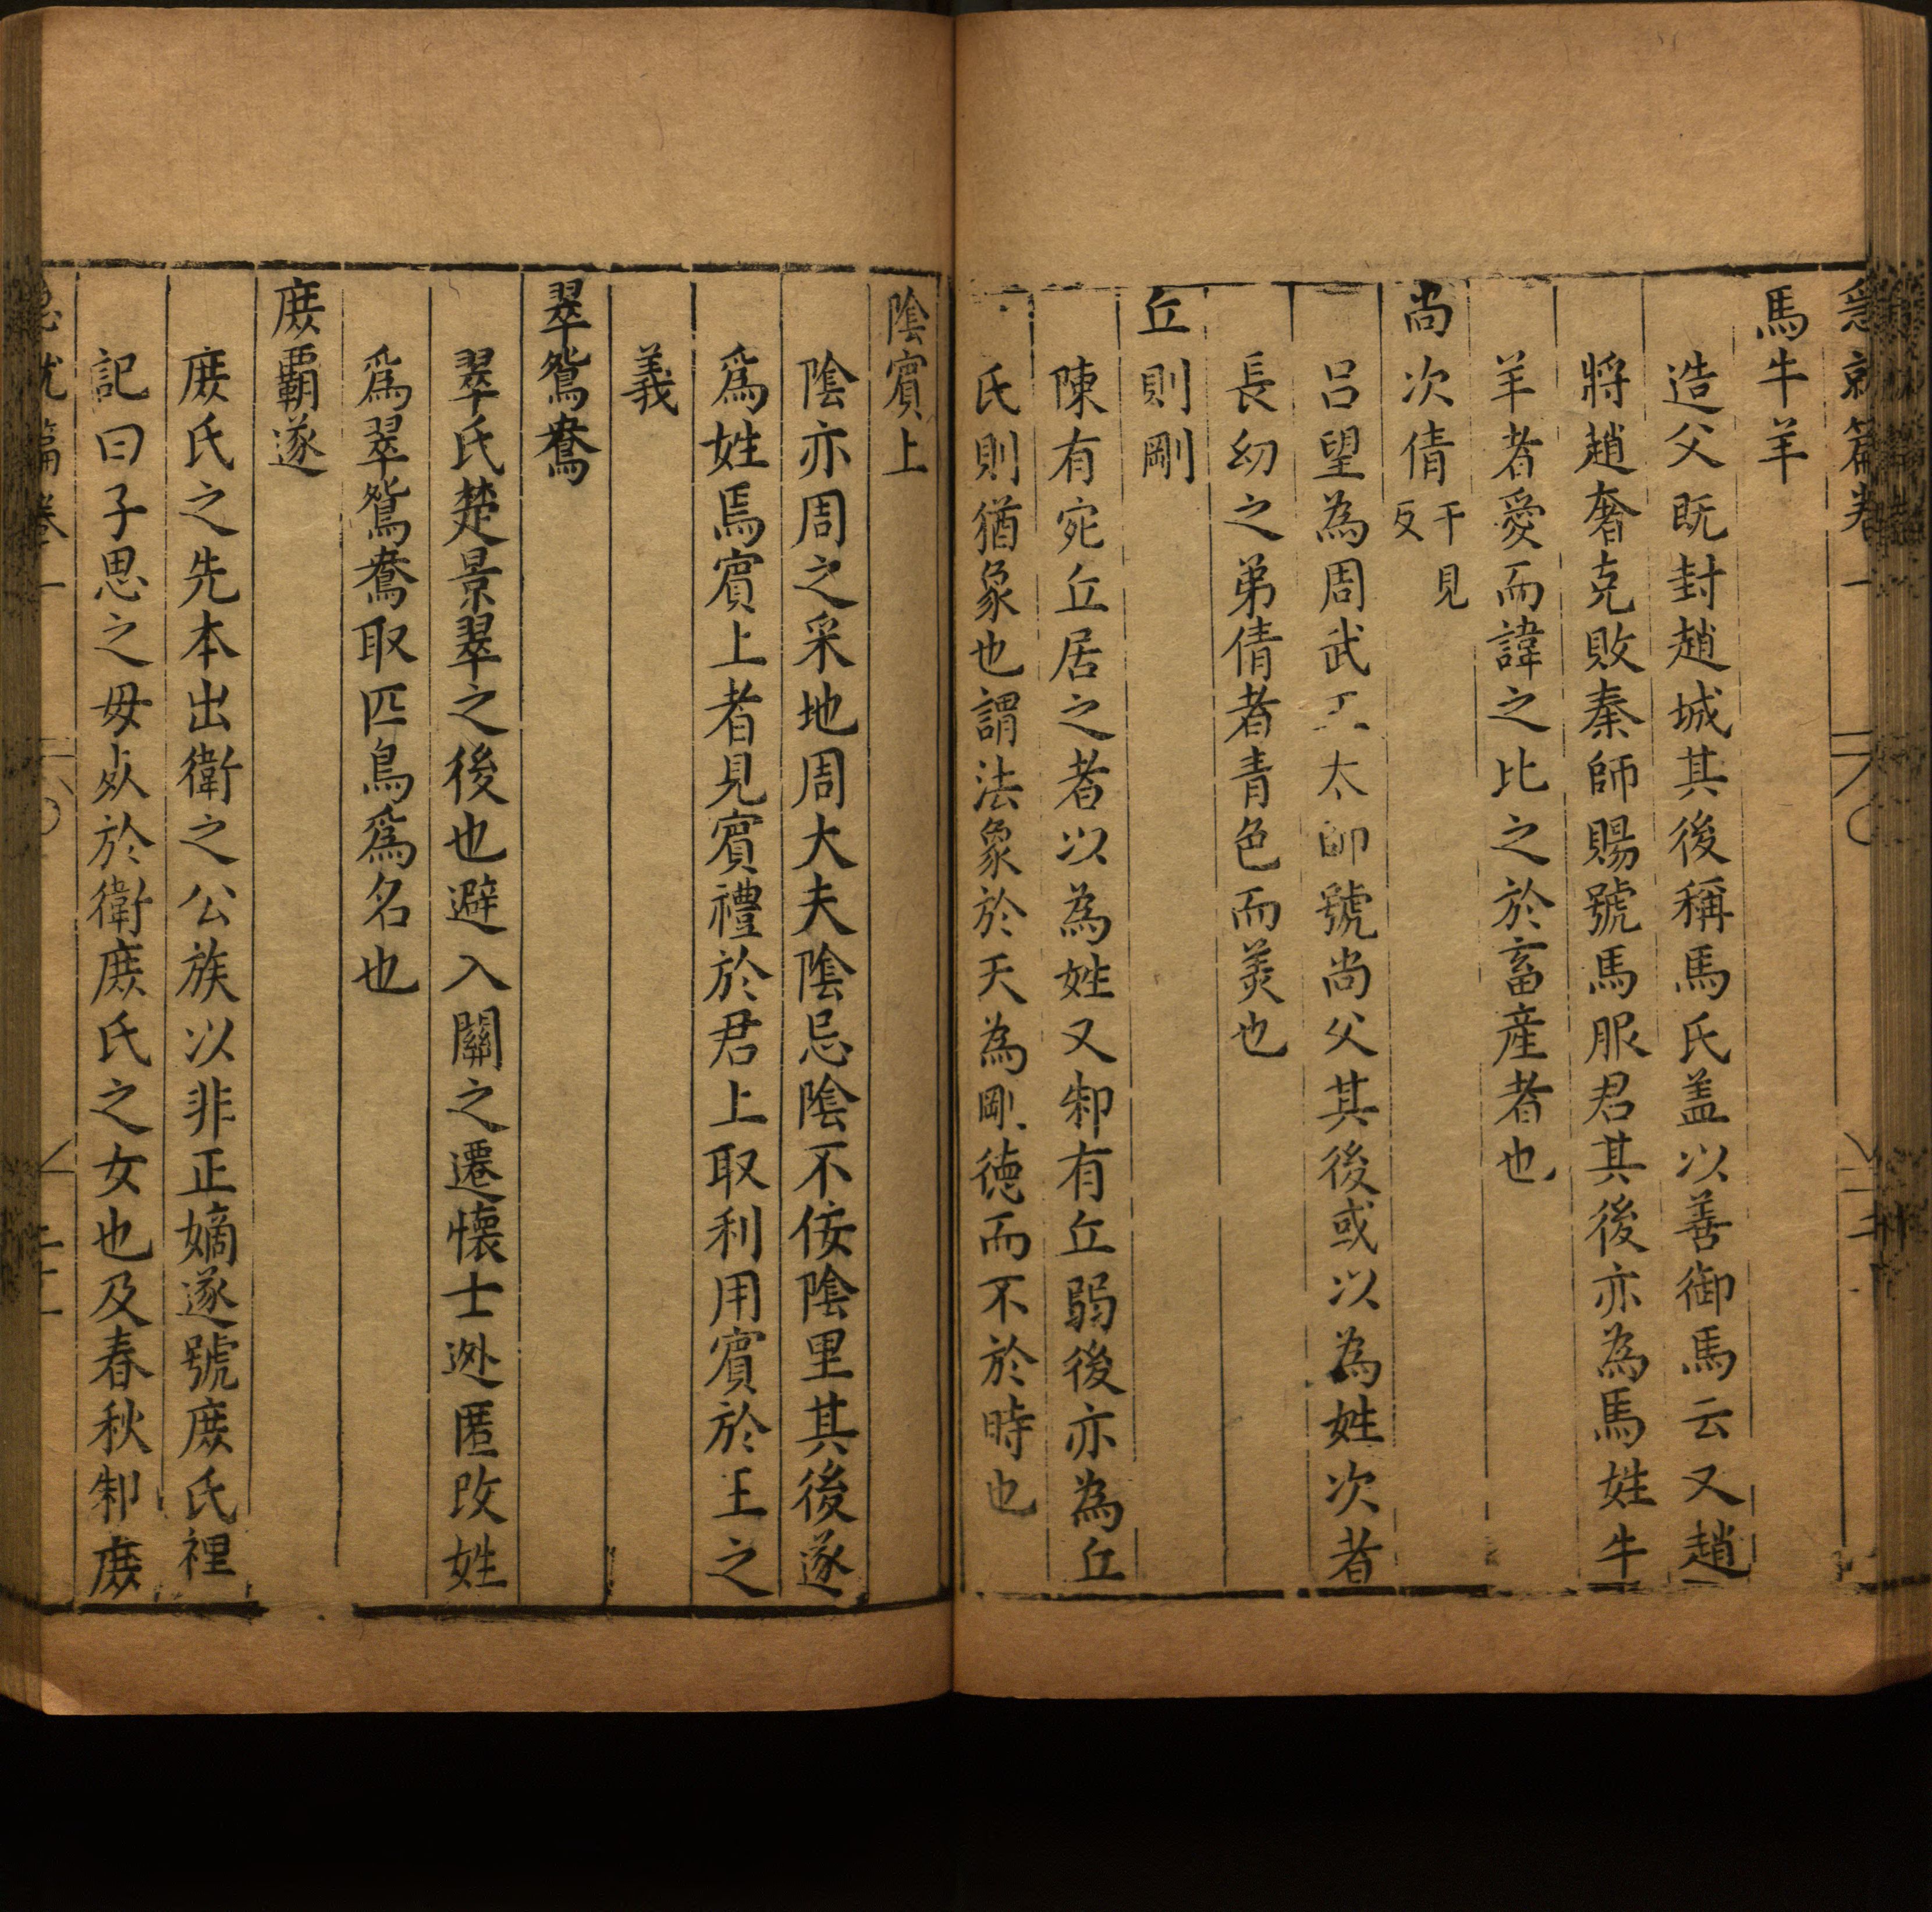 急就篇卷一
馬牛羊
造父既封趙城其後稱馬氏盖以善御馬云又趙
將趙奢克敗秦師賜號馬服君其後亦為馬姓牛
羊者愛而諱之比之於畜産者也
尚次倩千見反
呂望為周武太師號尚父其後或以為姓次者
長幼之弟倩者青色而美也
丘則剛
陳有宛丘居之者以為姓又邾有丘弱後亦為丘
氏則猶象也謂法象於天為剛德而不於時也
陰賓上
陰亦周之采地周大夫陰忌陰不佞陰里其後遂
爲姓焉賓上者見賓禮於君上取利用賓於王之
義
翠鴛鴦
翠氏楚景翠之後也避入關之遷懷士逊匿改姓
爲翠鴛鴦取匹鳥爲名也
庶霸遂
庶氏之先本出衛之公族以非正嫡遂號庶氏禮
記曰子思之毋死於衛庶氏之女也及春秋邾庶
急就篇卷一